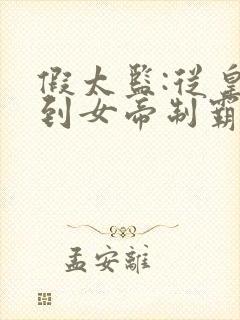 假太監:從皇
到女帝制霸
孟安離